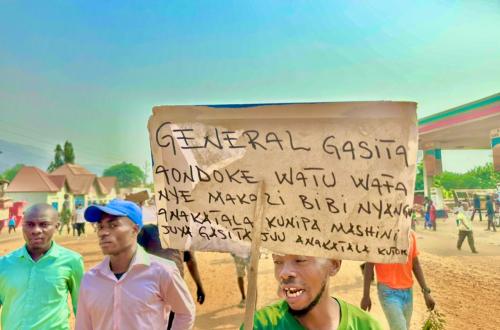 GENERAL GASITA
AONDOKE WATU WAFA
NYE MAKAZI BIBI NYANGU
ANAKATALA KUNIPA MASHINI
JUYA GASITA JUU ANAKATALA KUTOK